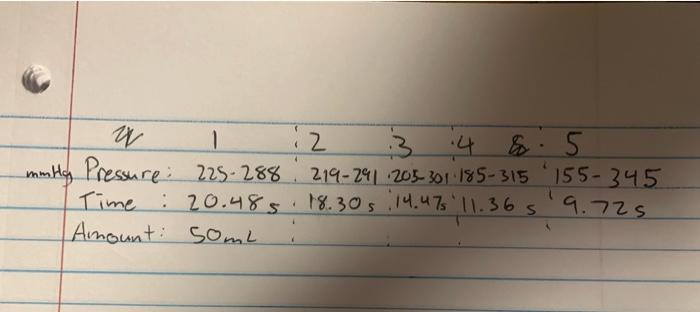 1 2 3 4 5
mmHg Pressure: 225-288 219-291 205-301 185-315 155-345
Time : 20.48s 18.30s 14.47s 11.36s 9.72s
Amount: 50mL